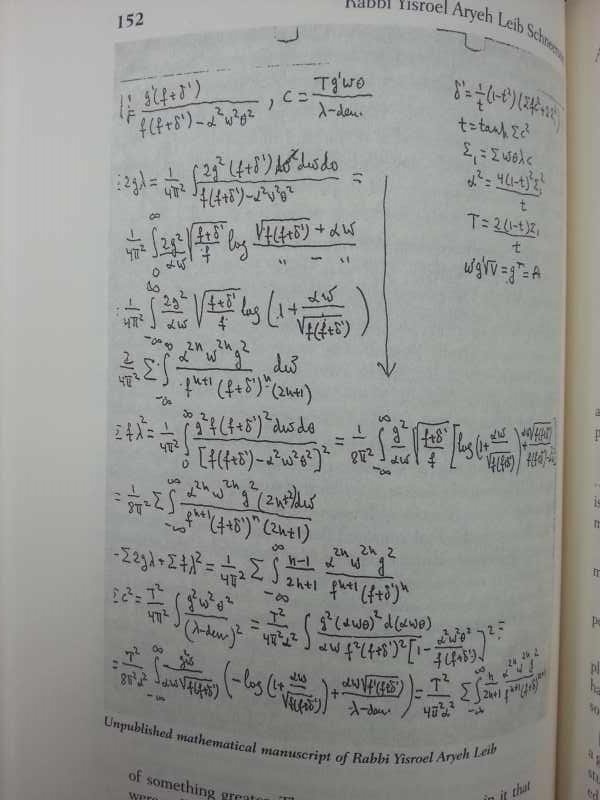 152
Rabbi Yisroel Aryeh Leib Schneerson
g'(f+δ')/(f(f+δ')-α²w²θ²), c = Tg'wθ/λ-den.
δ' = 1/t (1-t²)
t = tanh Σc²
Σ₁ = Σwθλc
α² = 4(1-t)²Σ₁²/t
T = 2(1-t)Σ₁/t
wg'√v = gᵀ = A
Σ2gλ = 1/4π² ∫ 2g²(f+δ') dw dθ/(f(f+δ')-α²w²θ²) =
1/4π² ∫₀^∞ 2g²/αw √((f+δ')/f) log (√(f(f+δ')) + αw)/(" - ")
= 1/4π² ∫_-∞^∞ 2g²/αw √((f+δ')/f) log (1 + αw/√(f(f+δ')))
2/4π² Σ ∫_-∞^∞ α²ⁿ w²ⁿ g²/(fⁿ⁺¹ (f+δ')ⁿ (2n+1)) dw
Σfλ² = 1/4π² ∫₀^∞ g² f(f+δ')² dw dθ/[f(f+δ')-α²w²θ²]² = 1/8π² ∫_-∞^∞ g²/αw √((f+δ')/f) [log (1+ αw/√(f(f+δ'))) + αw√(f(f+δ'))/
= 1/8π² Σ ∫_-∞^∞ α²ⁿ w²ⁿ g² (2n+2) dw/(fⁿ⁺¹ (f+δ')ⁿ (2n+1))
-Σ2gλ + Σfλ² = 1/4π² Σ ∫_-∞^∞ (n-1)/(2n+1) α²ⁿ w²ⁿ g²/(fⁿ⁺¹ (f+δ')ⁿ)
Σc² = T²/4π² ∫ g²w²θ²/(λ-den.)² = T²/4π²α² ∫ g²(αwθ)² d(αwθ)/(αw f²(f+δ')² [1 - α²w²θ²/f(f+δ')]²) =
= T²/8π²α² ∫_-∞^∞ g²w/(αw√(f(f+δ'))) (-log (1+ αw/√(f(f+δ'))) + αw√(f(f+δ'))/λ-den.) = T²/4π²α² Σ ∫_-∞^∞ n/(2n+1) α²ⁿ w²ⁿ g²/(fⁿ⁺¹ (f+δ')ⁿ⁺¹)
Unpublished mathematical manuscript of Rabbi Yisroel Aryeh Leib
of something greater. in it that